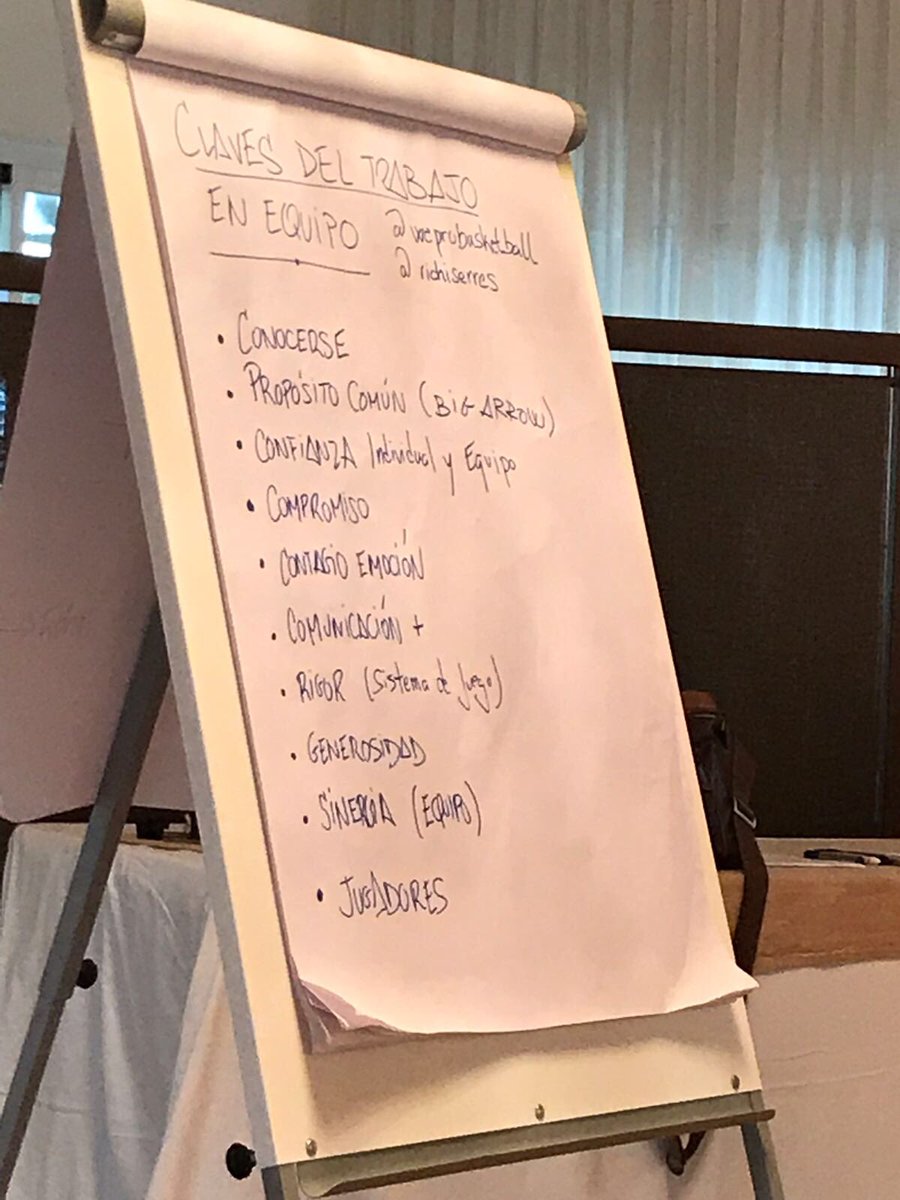 CLAVES DEL TRABAJO
EN EQUIPO
@weprobasketball
@richiserres
• CONOCERSE
• PROPÓSITO COMÚN (BIG ARROW)
• CONFIANZA Individual y Equipo
• COMPROMISO
• CONTAGIO EMOCIÓN
• COMUNICACIÓN +
• RIGOR (Sistema de Juego)
• GENEROSIDAD
• SINERGIA (EQUIPO)
• JUGADORES